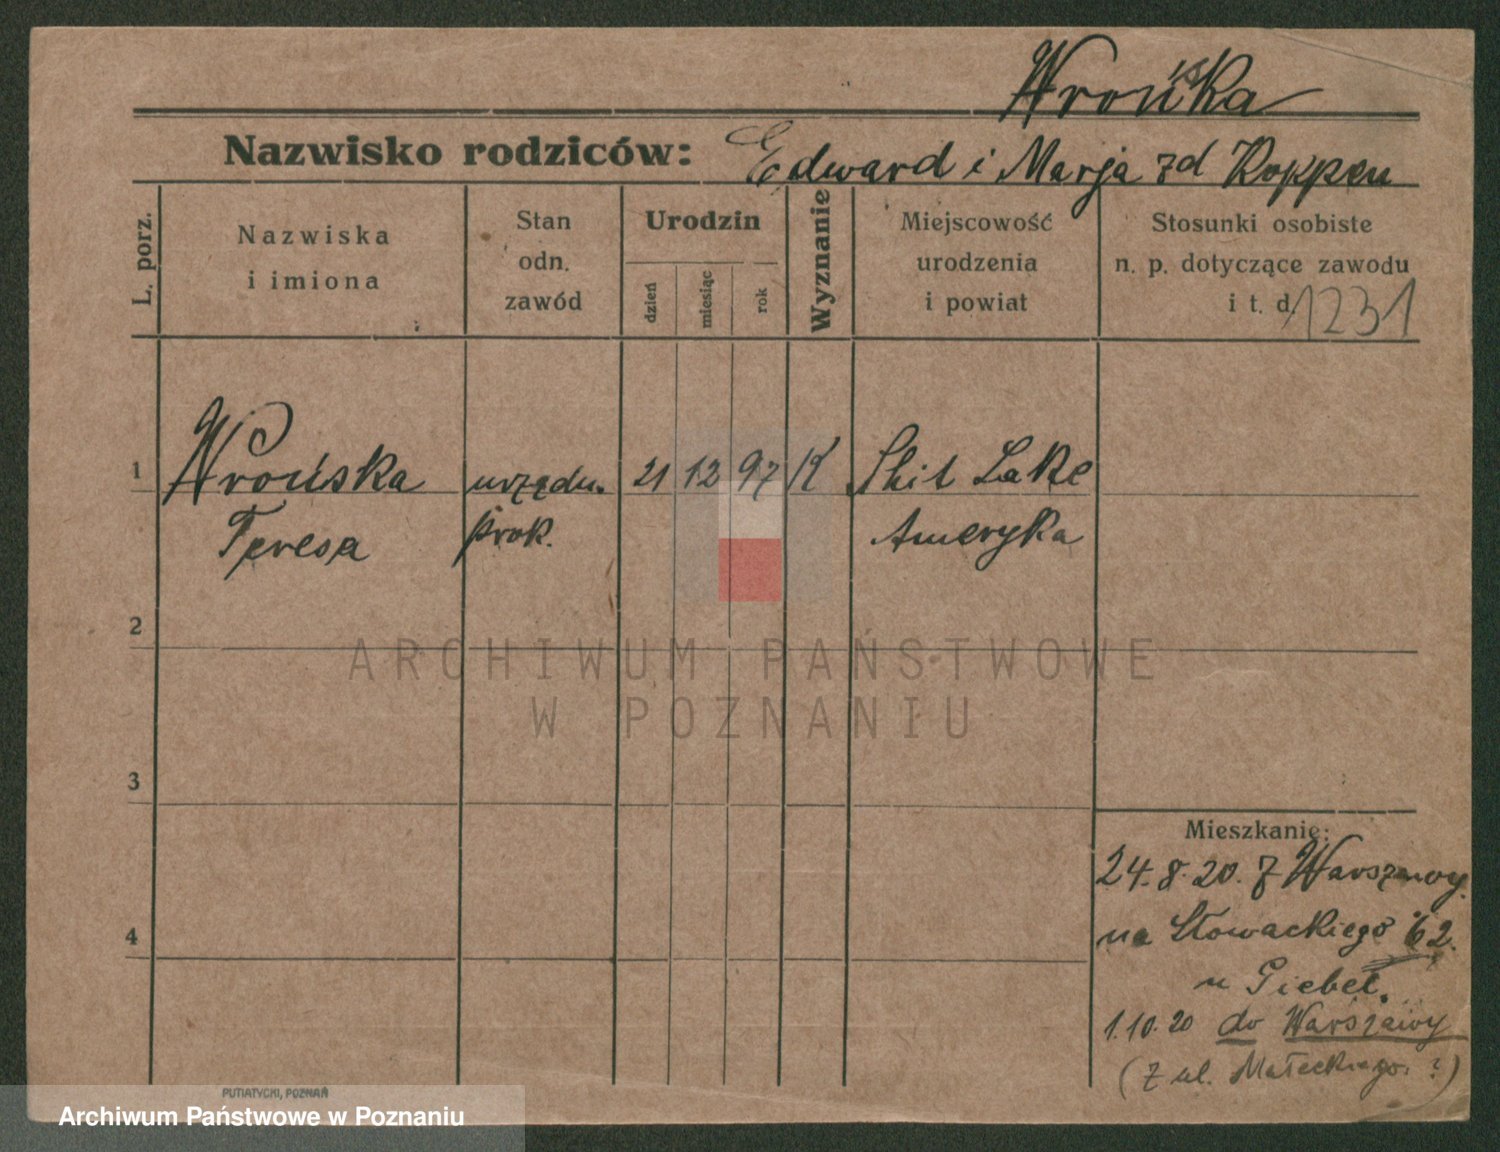 Wrońska
Nazwisko rodziców: Edward i Marja zd Koppen
L. porz.
Nazwiska
i imiona
Stan
odn.
zawód
Urodzin
dzień
miesiąc
rok
Wyznanie
Miejscowość
urodzenia
i powiat
Stosunki osobiste
n. p. dotyczące zawodu
i t. d. 1231
1 Wrońska urzędn. 21 12 97 K Shit Lake
Teresa prok. Ameryka
2
3
4
Mieszkanie:
24.8.20. Z Warszawy.
na Słowackiego 62.
u Giebel.
1.10.20 do Warszawy
(z ul. Małeckiego. ?)
PUTIATYCKI, POZNAŃ
ARCHIWUM PAŃSTWOWE
W POZNANIU
Archiwum Państwowe w Poznaniu